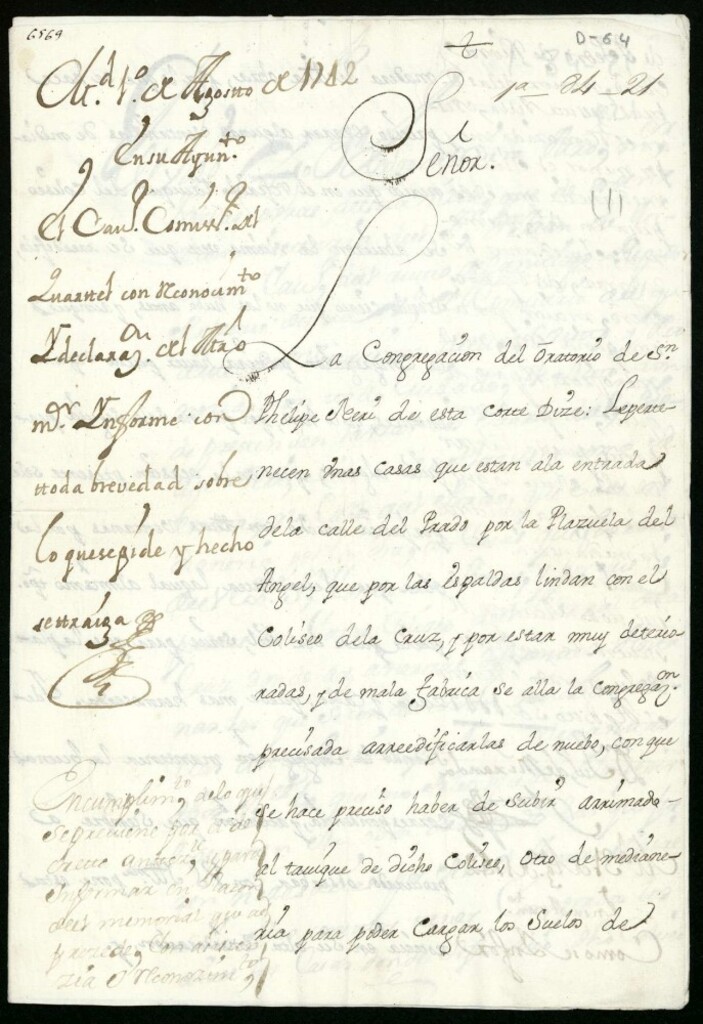 6569
D-64
1a 84-21
(1)
Md. 1.º de Agosto de 1742
En su Ayun.to
El Cav. Comiss.º del
Quartel con reconocim.to
Y declaraz.on del Mro
m.r Ynforme con
ttoda brevedad sobre
lo que se pide y hecho
se ttraiga
Señor.
La Congregacion del Oratorio de Sn.
Phelipe Neri de esta corte Dize: Leperte-
necen vnas casas que estan ala entrada
dela calle del Prado por la Plazuela del
Angel, que por las espaldas lindan con el
Coliseo dela Cruz, y por estar muy deterio-
radas, y de mala fabrica se alla la Congregaz.on
precisada arreedificarlas de nuebo, con que
se hace preciso haber de subir arrimado
al tavique de dicho Coliseo, otro de mediane-
ria para poder cargar los suelos de
En cumplim.to delo que
se previene por el de
creto antez.te para
Informar en razon
deel memorial
prozede con noti
zia y reconozim.to